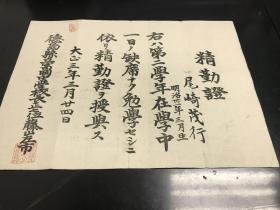 精勤證
尾崎茂行
明治卅一年三月生
右ハ第二學年在學中
一日ノ缺席ナク勉學セシニ
依リ精勤證ヲ授與ス
大正三年三月廿四日
德島縣立商業學校長